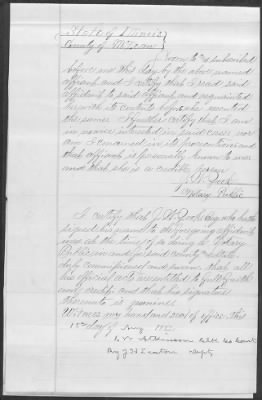 State of Illinois
County of McLean
Sworn to & subscribed
before me this day by the above named
affiant and I certify that I read said
affidavit to said affiant and acquainted
her with its contents before she executed
the same. I further certify that I am
in no wise interested in said case nor
am I concerned in its prosecution; and
that affiant is personally known to me
and that she is a credible person
J. W.
Notary Public
I certify that J. W. Esq who hath
signed his name to the foregoing affidavit
was at the time of so doing a Notary
Public in and for said county & State
duly commissioned and sworn that all
his official acts are entitled to full faith
and credit and that his signature
thereunto is genuine
Witness my hand and seal of office this
day of Aug
Clk Co Court
By Deputy